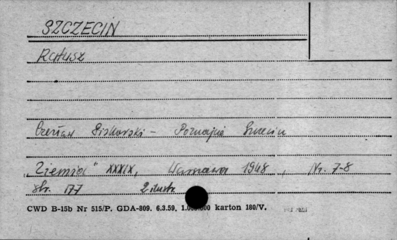 SZCZECIN
Ratusz
Czesław Piskorski – Poznajcie Szczecin
"Ziemia" XXXIX, Warszawa 1948, Nr. 7-8
str. 177 2 ilustr.
CWD B-15b Nr 515/P. GDA-809. 6.3.59, karton 180/V.